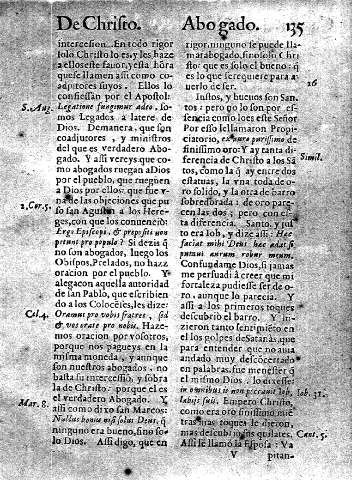 De Christo. Abogado. 135
intercession. En todo rigor
solo Christo lo es, y les haze
a essos este fauor, y esta hōra
que se llamen assi como co-
adjutores suyos. Ellos lo
confiessan por el Apostol:
S. Aug. Legatione fungimur adeo, so-
mos Legados à latere de
Dios. Demanera, que son
coadjutores, y ministros
del que es verdadero Abo-
gado. Y assi vereys que co-
mo abogados ruegan à Dios
por el pueblo, que rueguen
a Dios por ellos: que fue v-
na de las objeciones que pu
2. Cor. 5. so san Agustin a los Here-
ges, con que los conuenció:
Ergo Episcopi, & prepositi non
petunt pro populo? Si dezis q̃
no son abogados, luego los
Obispos, Prelados, no hazẽ
oracion por el pueblo. Y
alega con aquella autoridad
de san Pablo, que escribien
do a los Colocẽses, les dize:
Col. 4. Oramus pro vobis fratres, sed
& vos orate pro nobis. Haze-
mos oracion por vosotros,
porque nos pagueys en la
misma moneda, y aunque
son nuestros abogados, no
basta su intercession, y sobra
la de Christo: porque el es
el verdadero Abogado. Y
Mar. 8. assi como dixo san Marcos:
Nullus bonus nisi solus Deus, q̃
ninguno era bueno, sino so-
lo Dios. Assi digo, que en
rigor, ninguno se puede lla-
mar abogado, sino solo Chris
to: que es solo el bueno: q̃
es lo que se requiere para a
uerlo de ser.
26
Iustos, y buenos son San-
tos: pero no lo son por es-
sencia como lo es este Señor
Por esso le llamaron Propi-
ciatorio, ex auro purissimo de
finissimo oro: Y ay tanta di-
Simil.
ferencia de Christo a los Sã-
tos, como la q̃ ay entre dos
estatuas, la vna toda de o-
ro solido, y la otra de barro
sobredorada: de oro pare-
cen las dos; pero con es-
ta diferencia. Santo, y jus
to era Iob, y dize assi: Hæc
faciat mihi Deus
putaui aurum robur meum.
Confundame Dios, si jamas
me persuadi à creer que mi
fortaleza pudiesse ser de o-
ro, aunque lo parecia. Y
assi a los primeros toques
descubrió el barro. Y hi-
zieron tanto sentimiẽto en
el los golpes de Satanàs, que
para entender que no auia
andado muy descõcertado
en palabras, fue menester q̃
el mismo Dios lo dixesse:
Iob. 31. in omnibus his non peccauit Iob,
labijs suis. Empero Christo,
como era oro finissimo mié
tras mas toques le dieron,
mas descubrio sus quilates.
Cant. 5. Assi se llamó la Esposa: Va
V pitan-